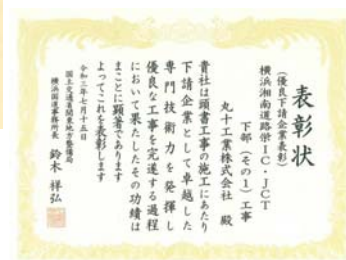 表彰状
(優良下請企業表彰)
横浜湘南道路栄IC・JCT
下部(その1)工事
丸十工業株式会社 殿
貴社は頭書工事の施工にあたり
下請企業として卓越した
専門技術力を発揮し
優良な工事を完遂する過程
において果たしたその功績は
まことに顕著であります
よってこれを表彰します
令和三年七月十五日
国土交通省関東地方整備局
横浜国道事務所長 鈴木祥弘